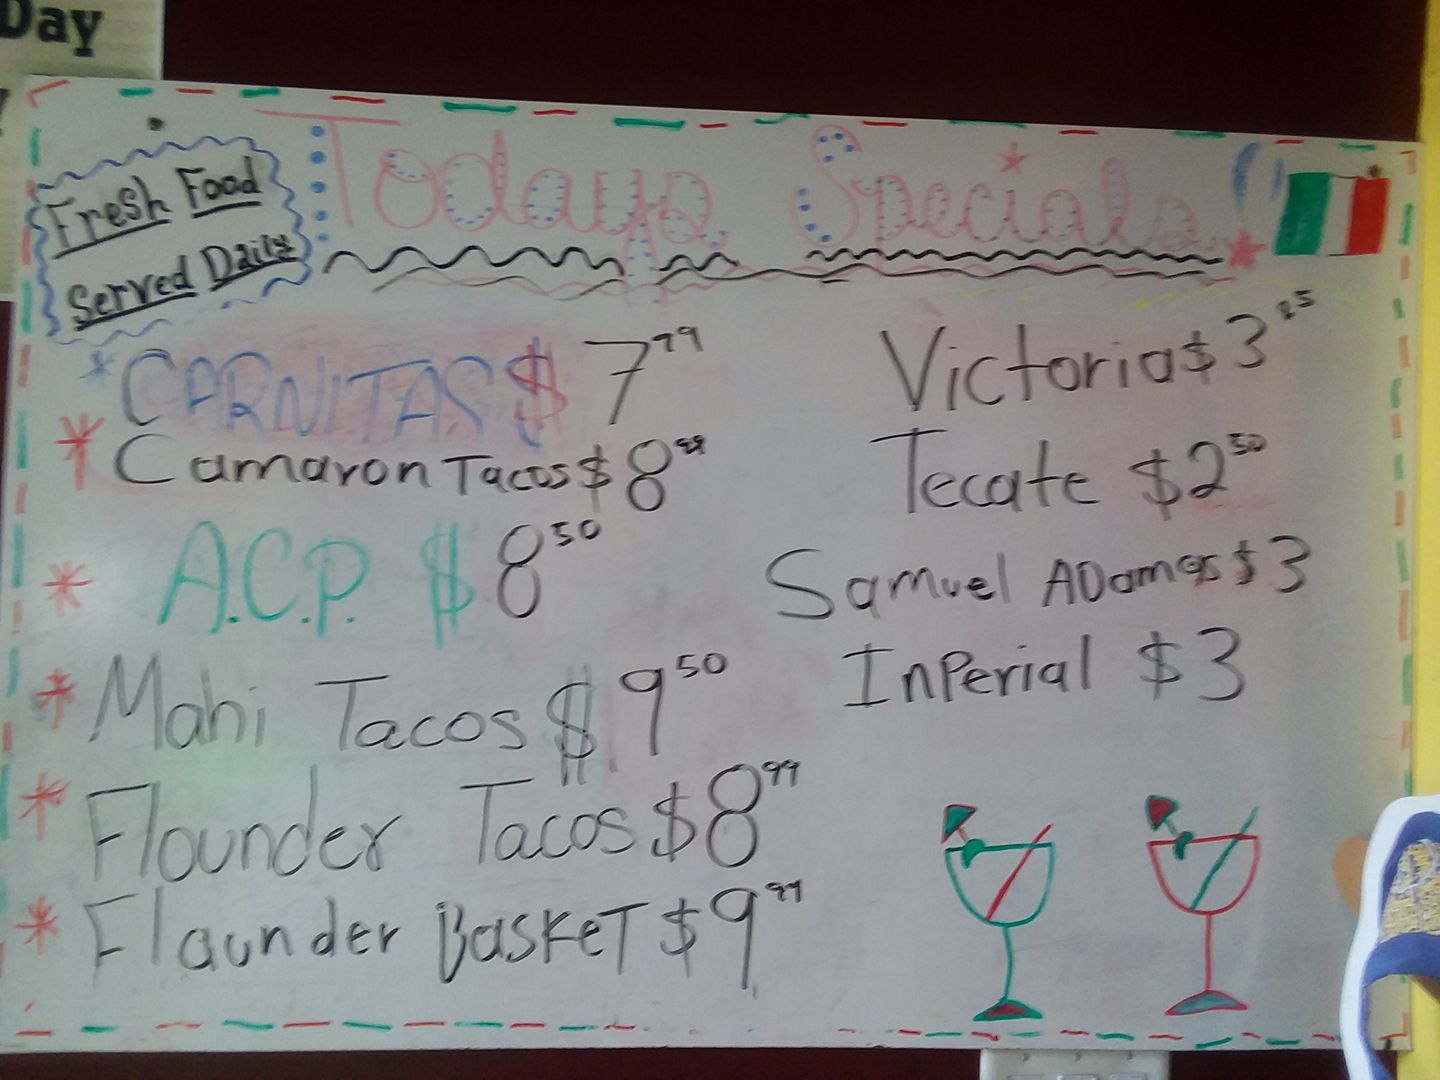 Day
Fresh Food
Served Daily
Todays Specials!
*CARNITAS $7.99
*Camaron Tacos $8.99
*A.C.P. $8.50
*Mahi Tacos $9.50
*Flounder Tacos $8.99
*Flaunder BaskeT $9.99
Victoria $3.25
Tecate $2.50
Samuel ADames $3
InPerial $3